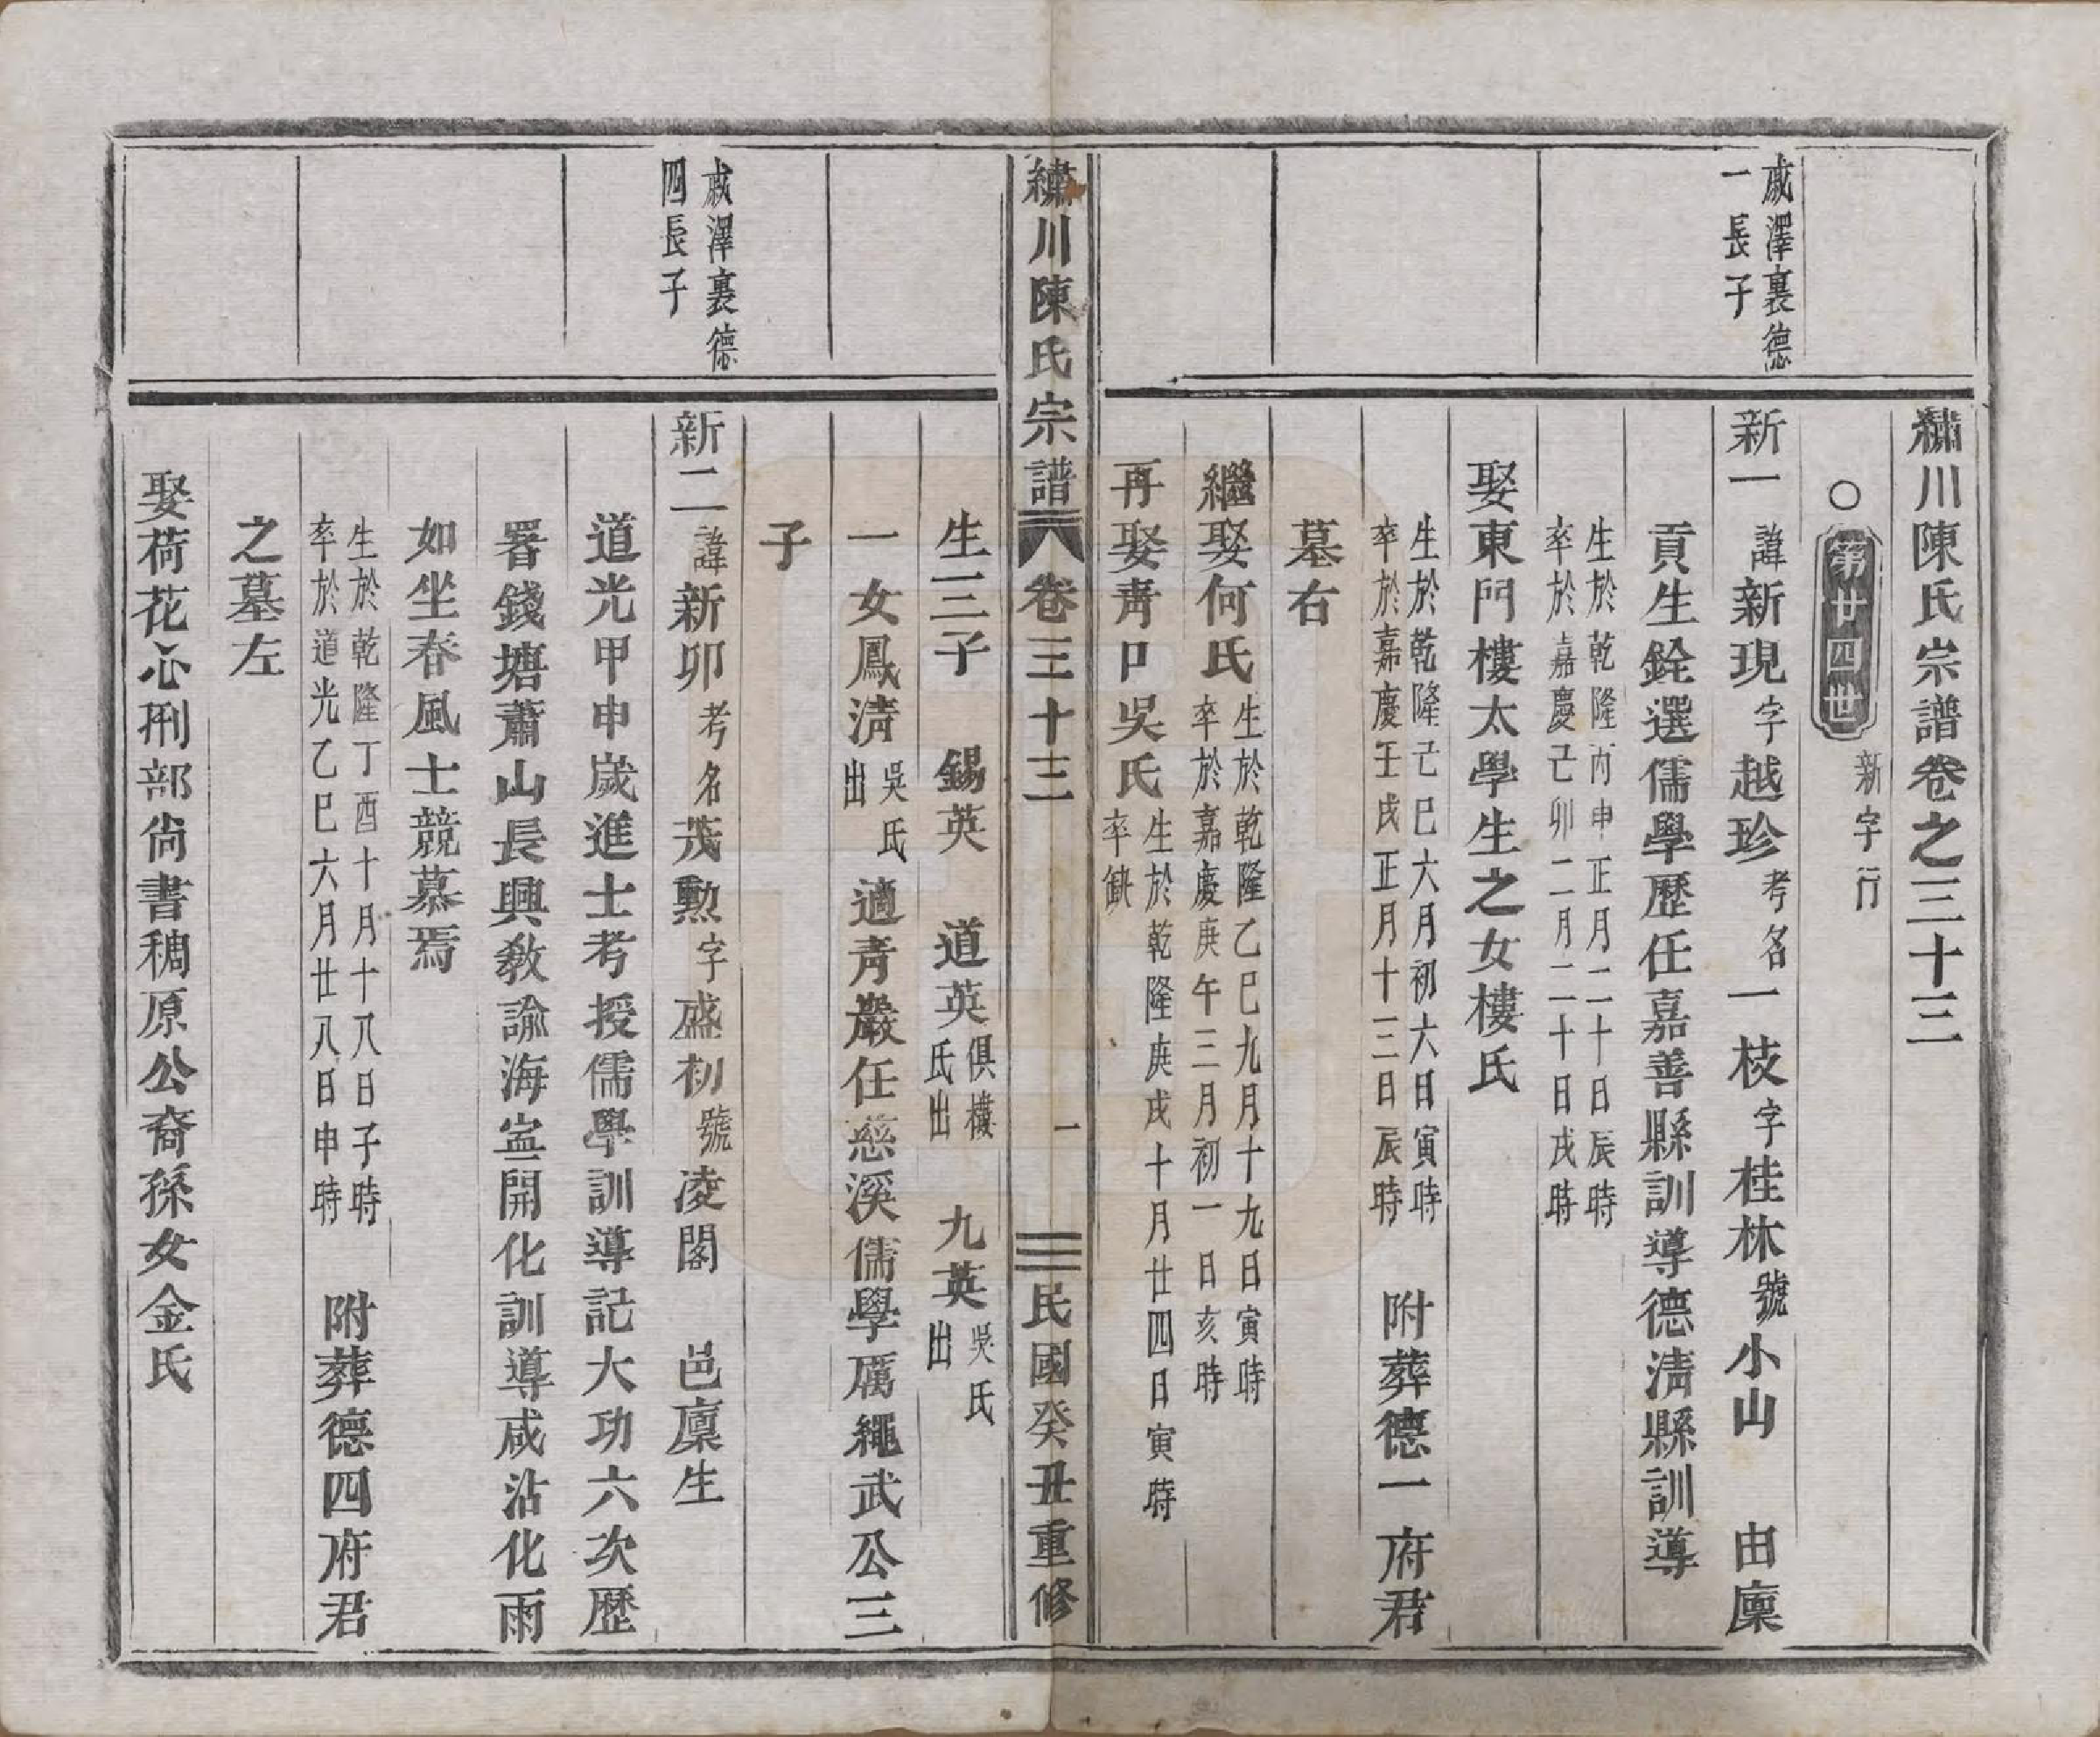 繡川陳氏宗譜卷之三十三
○第廿四世 新字行
戚澤裏德
一長子
新一 諱新現字越珍考名一枝字桂林號小山 由廩
貢生銓選儒學歷任嘉善縣訓導德淸縣訓導
生於乾隆丙申正月二十日辰時
卒於嘉慶己卯二月二十日戌時
娶東門樓太學生之女樓氏
生於乾隆己巳六月初六日寅時
卒於嘉慶壬戌正月十三日辰時
附葬德一府君
墓右
繼娶何氏
生於乾隆乙巳九月十九日寅時
卒於嘉慶庚午三月初一日亥時
再娶靑口吳氏
生於乾隆庚戌十月廿四日寅時
卒缺
繡川陳氏宗譜 卷三十三 一 民國癸丑重修
生三子 錫英 道英
俱樓
氏出
九英
吳氏
出
一女鳳淸
吳氏
出
適青巖任慈溪儒學厲繩武公三
子
戚澤裏德
四長子
新二 諱新卯考名茂勲字盛初號凌閣 邑廩生
道光甲申歲進士考授儒學訓導記大功六次歷
署錢塘蕭山長興敎諭海寍開化訓導咸沾化雨
如坐春風士競慕焉
生於乾隆丁酉十月十八日子時
卒於道光乙巳六月廿八日申時
附葬德四府君
之墓左
娶荷花心刑部尙書稠原公裔孫女金氏